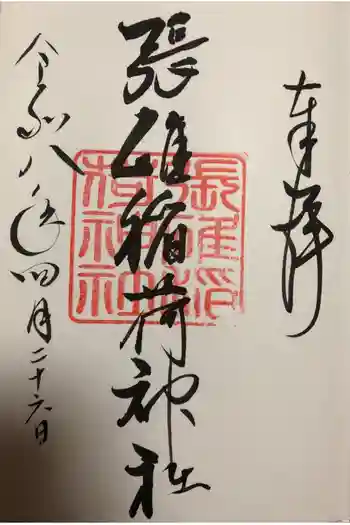 奉拝
張碓稲荷神社
張碓稲荷神社
令和八年四月二十六日